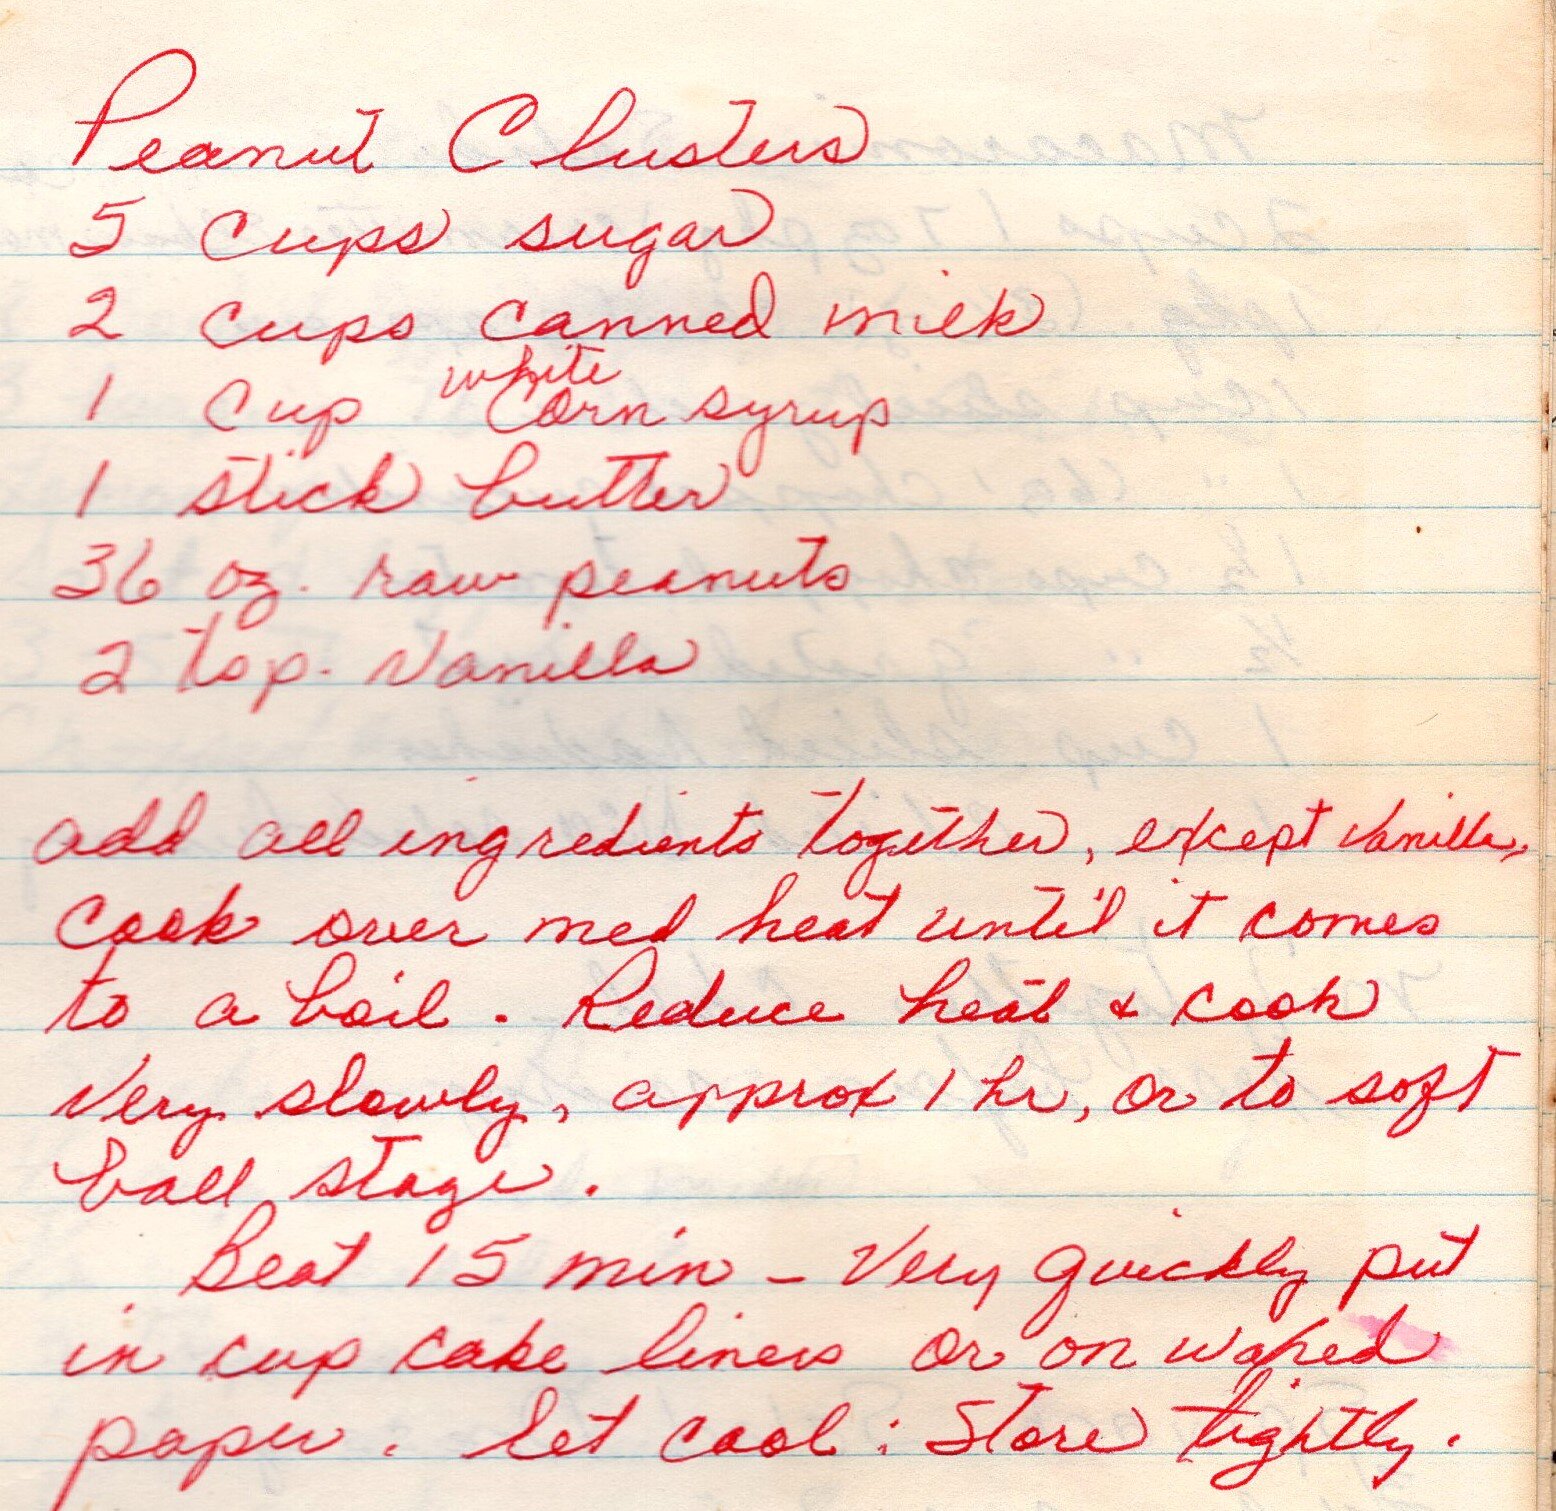 Peanut Clusters
5 cups sugar
2 cups canned milk
white
1 cup corn syrup
1 stick butter
36 oz. raw peanuts
2 tsp. vanilla
add all ingredients together, except vanilla,
cook over med heat until it comes
to a boil. Reduce heat & cook
very slowly, approx 1 hr, or to soft
ball stage.
Beat 15 min - Very quickly put
in cup cake liners or on waxed
paper. Let cool. Store tightly.